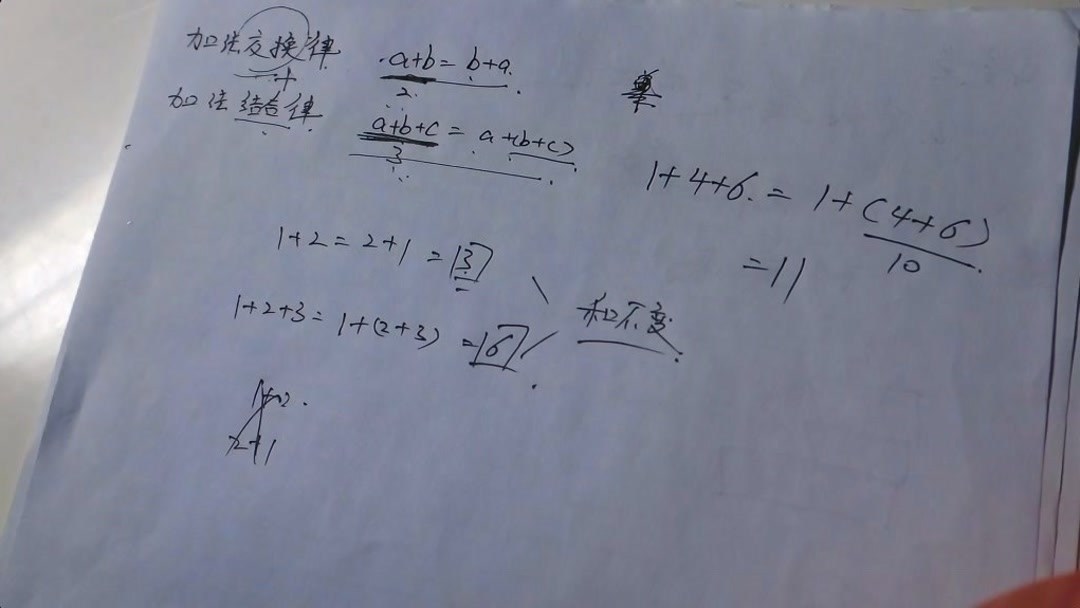 加法交换律 a+b=b+a
2
加法结合律 a+b+c=a+(b+c)
3
1+4+6=1+(4+6)
10
=11
1+2=2+1=3
1+2+3=1+(2+3)=6
和不变
1+2
2+1